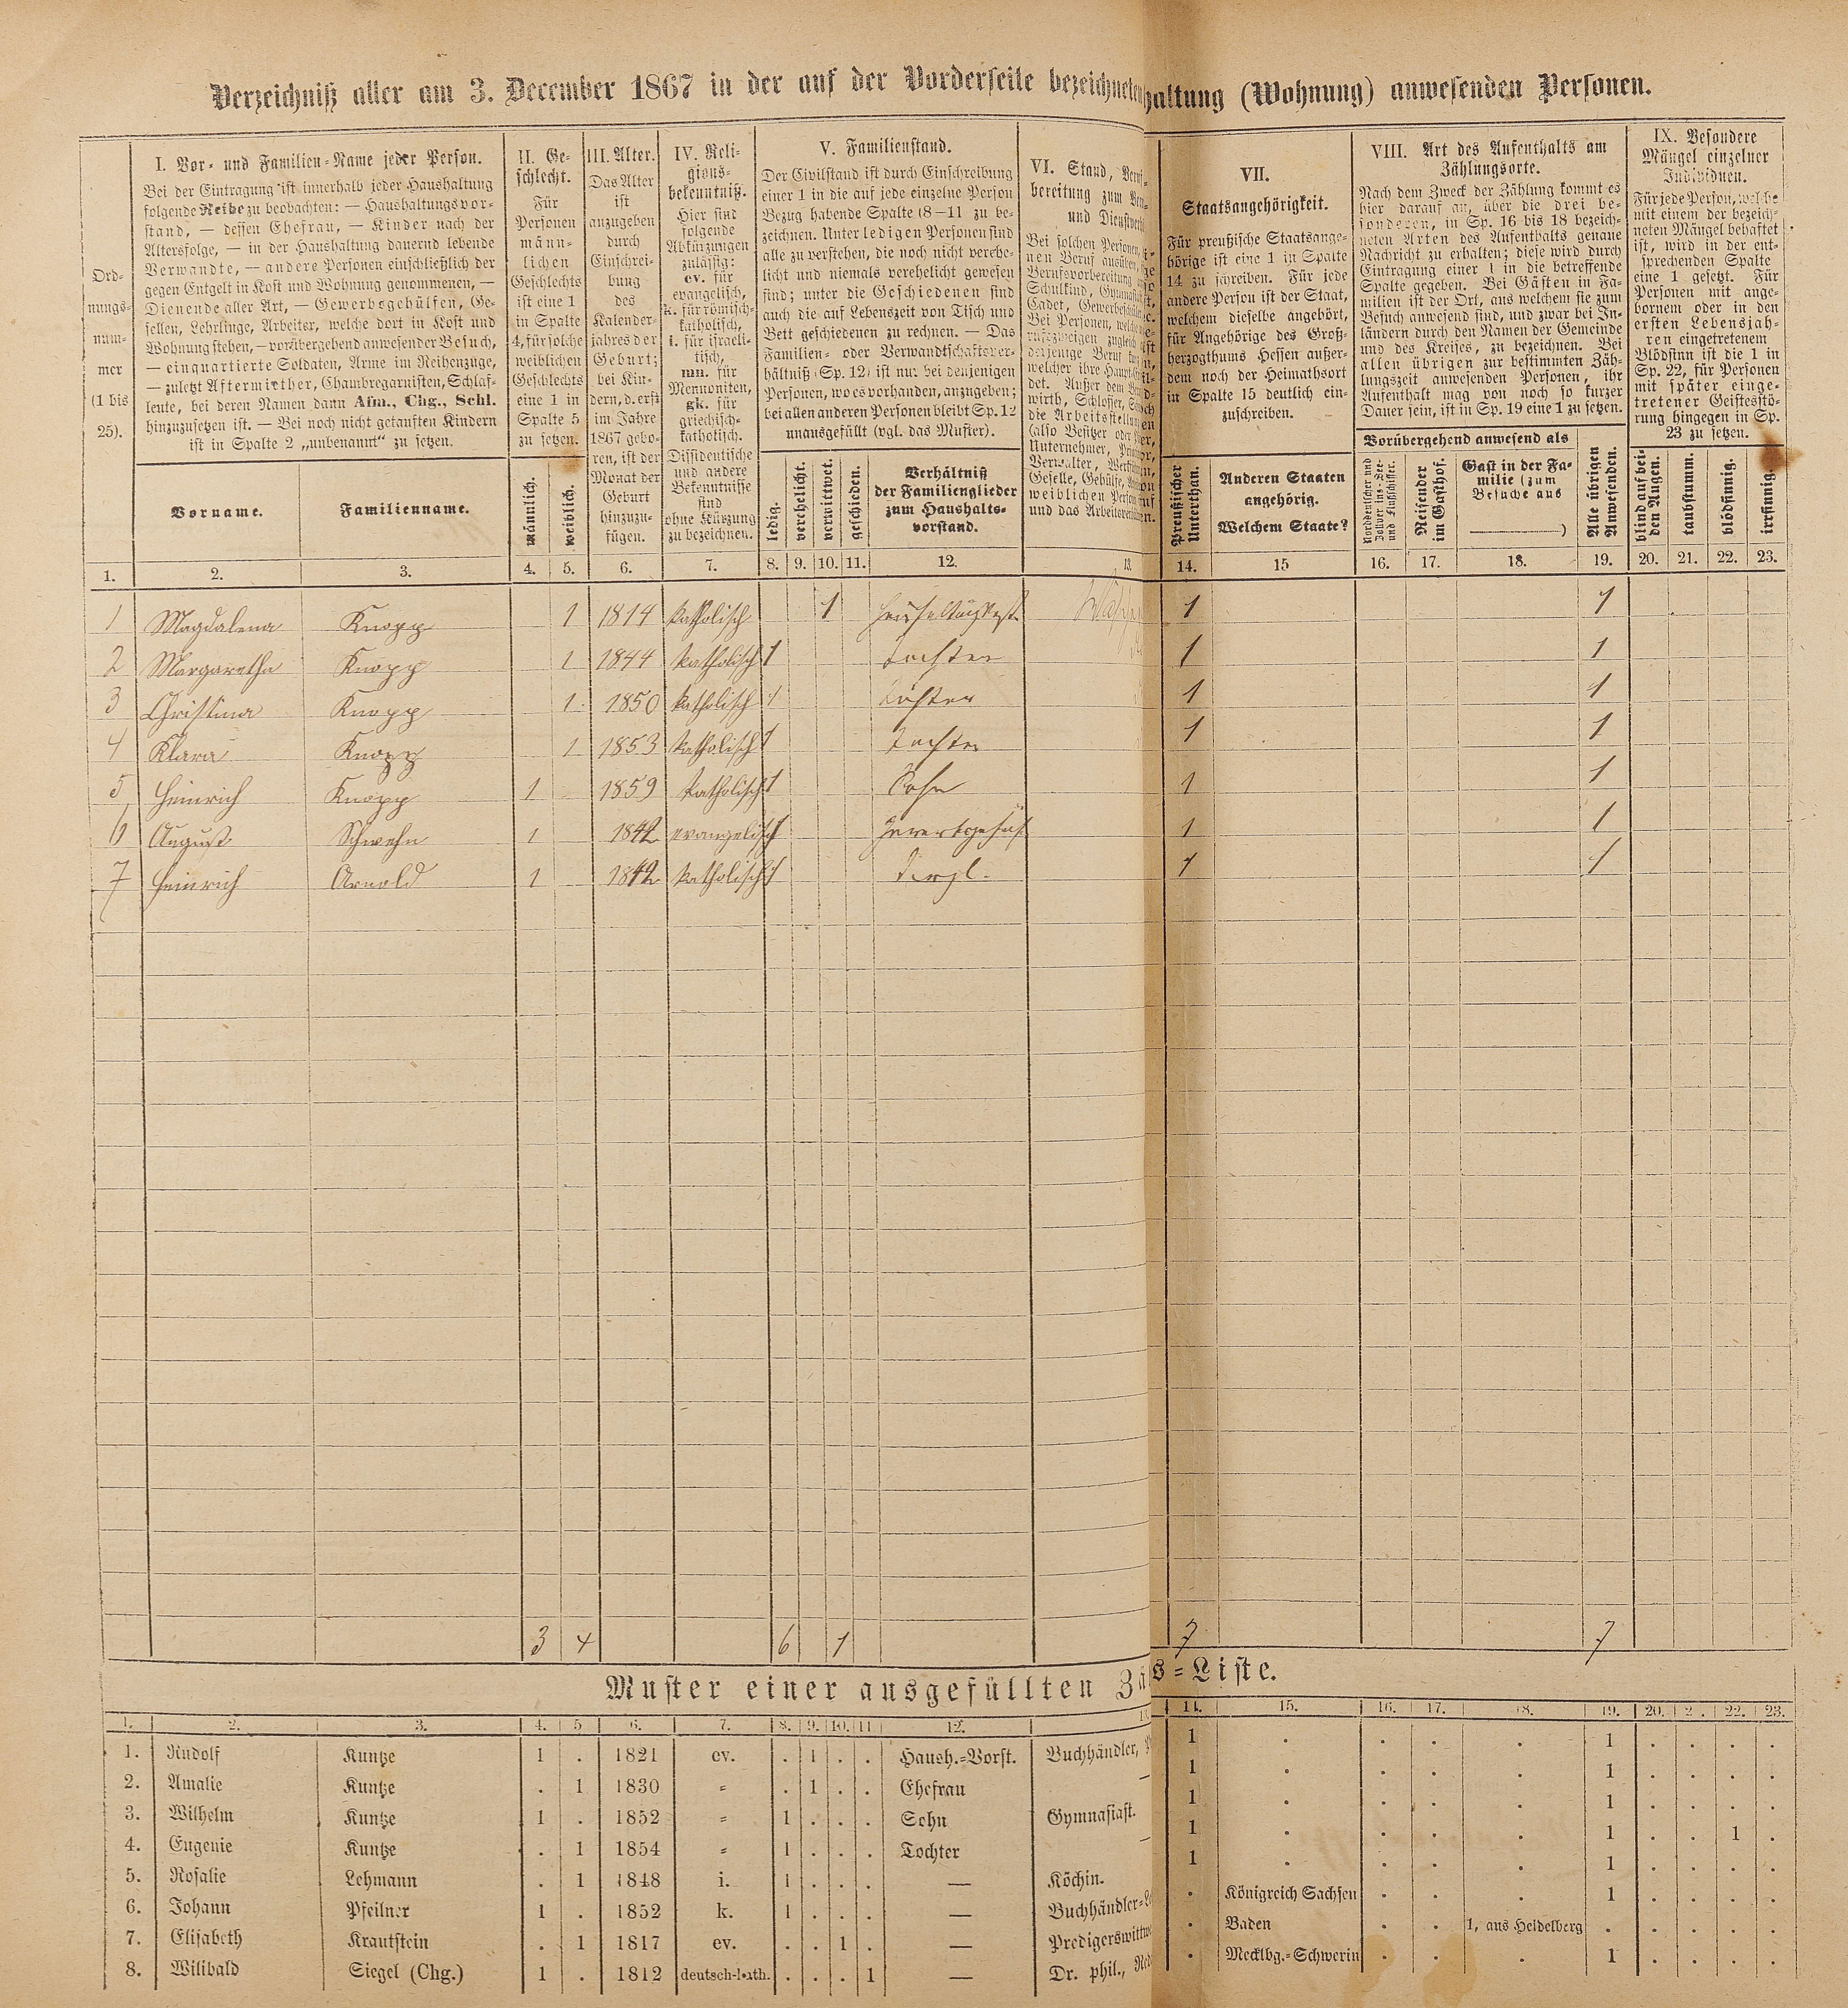 Verzeichniß aller am 3. December 1867 in der auf der Vorderseite bezeichneten haltung (Wohnung) anwesenden Personen.
Ord-
nungs-
num-
mer
(1 bis
25).
I. Vor- und Familien-Name jeder Person.
Bei der Eintragung ist innerhalb jeder Haushaltung
folgende Reihe zu beobachten: — Haushaltungsvor-
stand, — dessen Ehefrau, — Kinder nach der
Altersfolge, — in der Haushaltung dauernd lebende
Verwandte, — andere Personen einschließlich der
gegen Entgelt in Kost und Wohnung genommenen, —
Dienende aller Art, — Gewerbsgehülfen, Ge-
sellen, Lehrlinge, Arbeiter, welche dort in Kost und
Wohnung stehen, — vorübergehend anwesender Besuch,
— einquartierte Soldaten, Arme im Reihenzuge,
— zuletzt Aftermiether, Chambregarnisten, Schlaf-
leute, bei deren Namen dann Afm., Chg., Schl.
hinzuzusetzen ist. — Bei noch nicht getauften Kindern
ist in Spalte 2 „unbenannt“ zu setzen.
Vorname.
Familienname.
II. Ge-
schlecht.
Für
Personen
männ-
lichen
Geschlechts
ist eine 1
in Spalte
4, für solche
weiblichen
Geschlechts
eine 1 in
Spalte 5
zu setzen.
männlich.
weiblich.
III. Alter.
Das Alter
ist
anzugeben
durch
Einschrei-
bung
des
Kalender-
jahres der
Geburt;
bei Kin-
dern, d. erst
im Jahre
1867 gebo-
ren, ist der
Monat der
Geburt
hinzuzu-
fügen.
IV. Reli-
gions-
bekenntniß.
Hier sind
folgende
Abkürzungen
zulässig:
ev. für
evangelisch,
k. für römisch-
katholisch,
i. für israeli-
tisch,
mn. für
Mennoniten,
gk. für
griechisch-
katholisch.
Dissidentische
und andere
Bekenntnisse
sind
ohne Kürzung
zu bezeichnen.
V. Familienstand.
Der Civilstand ist durch Einschreibung
einer 1 in die auf jede einzelne Person
Bezug habende Spalte (8—11 zu be-
zeichnen. Unter ledigen Personen sind
alle zu verstehen, die noch nicht verehe-
licht und niemals verehelicht gewesen
sind; unter die Geschiedenen sind
auch die auf Lebenszeit von Tisch und
Bett geschiedenen zu rechnen. — Das
Familien- oder Verwandtschaftsver-
hältniß (Sp. 12) ist nur bei denjenigen
Personen, wo es vorhanden, anzugeben;
bei allen anderen Personen bleibt Sp. 12
unausgefüllt (vgl. das Muster).
ledig.
verehelicht.
verwittwet.
geschieden.
Verhältniß
der Familienglieder
zum Haushalts-
vorstand.
VI. Stand,
bereitung zum
und
Bei solchen Personen,
nen Beruf ausüben,
Berufsvorbereitung
Schulkind,
Cadet,
Bei Personen,
zugleich
derjenige Beruf
welcher ihre
det. Außer dem
wirth, Schlosser,
die
(also Besitzer oder
Unternehmer,
Verwalter,
Geselle, Gehülfe,
weiblichen
und das
VII.
Staatsangehörigkeit.
Für preußische Staatsange-
hörige ist eine 1 in Spalte
14 zu schreiben. Für jede
andere Person ist der Staat,
welchem dieselbe angehört,
für Angehörige des Groß-
herzogthums Hessen außer-
dem noch der Heimathsort
in Spalte 15 deutlich ein-
zuschreiben.
Preußischer
Unterthan.
Anderen Staaten
angehörig.
Welchem Staate?
VIII. Art des Aufenthalts am
Zählungsorte.
Nach dem Zweck der Zählung kommt es
hier darauf an, über die drei be-
sonderen, in Sp. 16 bis 18 bezeich-
neten Arten des Aufenthalts genaue
Nachricht zu erhalten; diese wird durch
Eintragung einer 1 in die betreffende
Spalte gegeben. Bei Gästen in Fa-
milien ist der Ort, aus welchem sie zum
Besuch anwesend sind, und zwar bei In-
ländern durch den Namen der Gemeinde
und des Kreises, zu bezeichnen. Bei
allen übrigen zur bestimmten Zäh-
lungszeit anwesenden Personen, ihr
Aufenthalt mag von noch so kurzer
Dauer sein, ist in Sp. 19 eine 1 zu setzen.
Vorübergehend anwesend als
Norddeutscher und
Zollver ins-See-
und Flußschiffer.
Reisender
im Gasthof.
Gast in der Fa-
milie (zum
Besuche aus
)
Alle übrigen
Anwesenden.
IX. Besondere
Mängel einzelner
Individuen.
Für jede Person, welche
mit einem der bezeich-
neten Mängel behaftet
ist, wird in der ent-
sprechenden Spalte
eine 1 gesetzt. Für
Personen mit ange-
bornem oder in den
ersten Lebensjah-
ren eingetretenem
Blödsinn ist die 1 in
Sp. 22, für Personen
mit später einge-
tretener Geistesstö-
rung hingegen in Sp.
23 zu setzen.
blind auf bei-
den Augen.
taubstumm.
blödsinnig.
irrsinnig.
1. 2. 3. 4. 5. 6. 7. 8. 9. 10. 11. 12. 13. 14. 15 16. 17. 18. 19. 20. 21. 22. 23.
1 Magdalena Knopp 1 1814 katholisch 1 1 1
2 Margaretha Knopp 1 1844 katholisch 1 Tochter 1 1
3 Christina Knopp 1 1850 katholisch 1 Tochter 1 1
4 Klara Knopp 1 1853 katholisch 1 Tochter 1 1
5 Heinrich Knopp 1 1859 katholisch 1 Sohn 1 1
6 August Schwehn 1 1842 evangelisch 1 1 1
7 Heinrich Arnold 1 1842 katholisch 1 dergl. 1 1
3 4 6 1 7 7
Muster einer ausgefüllten Zä s-Liste.
1. 2. 3. 4. 5 6. 7. 8. 9. 10. 11 12. 13 14. 15. 16. 17. 18. 19. 20. 2 . 22. 23.
1. Rudolf Kuntze 1 . 1821 ev. . 1 . . Haush.-Vorst. Buchhändler, 1 . . . . 1 . . . .
2. Amalie Kuntze . 1 1830 = . 1 . . Ehefrau — 1 . . . . 1 . . . .
3. Wilhelm Kuntze 1 . 1852 = 1 . . . Sohn Gymnasiast. 1 . . . . 1 . . . .
4. Eugenie Kuntze . 1 1854 = 1 . . . Tochter — 1 . . . . 1 . . 1 .
5. Rosalie Lehmann . 1 1848 i. 1 . . . — Köchin. 1 . . . . 1 . . . .
6. Johann Pfeilner 1 . 1852 k. 1 . . . — Buchhändler- . Königreich Sachsen . . . 1 . . . .
7. Elisabeth Krautstein . 1 1817 ev. . . 1 . — Predigerswittwe . Baden . . 1, aus Heidelberg . . . . .
8. Wilibald Siegel (Chg.) 1 . 1812 deutsch-kath. . . . 1 — Dr. phil., . Mecklbg.-Schwerin . . . 1 . . . .